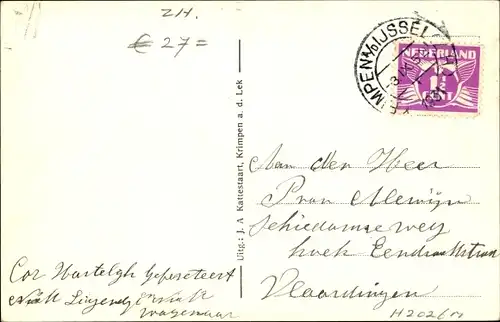 ZH.
€ 27=
KRIMPEN A/D IJSSEL
1931
NEDERLAND
1½
CENT
Uitg.: J. A. Kattestaart, Krimpen a. d. Lek
Aan den Heer
P van
Schiedamse weg
hoek Eendrachtstraat
Vlaardingen
Cor Hartelyk Gefeseteert
Wagenaar
H2026M